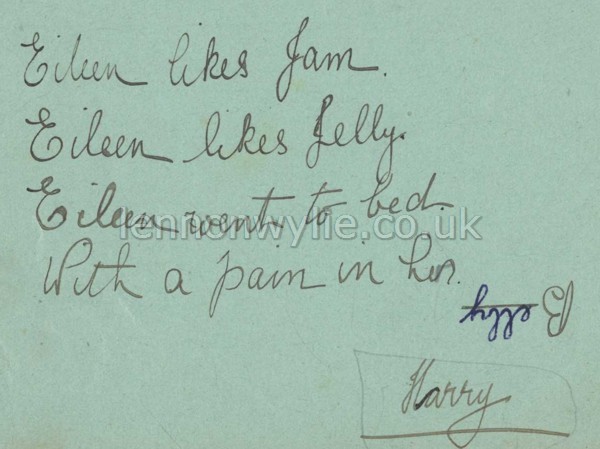 Eileen likes Jam.
Eileen likes Jelly.
Eileen went to bed.
lennonwylie.co.uk
With a pain in her.
Belly
Harry